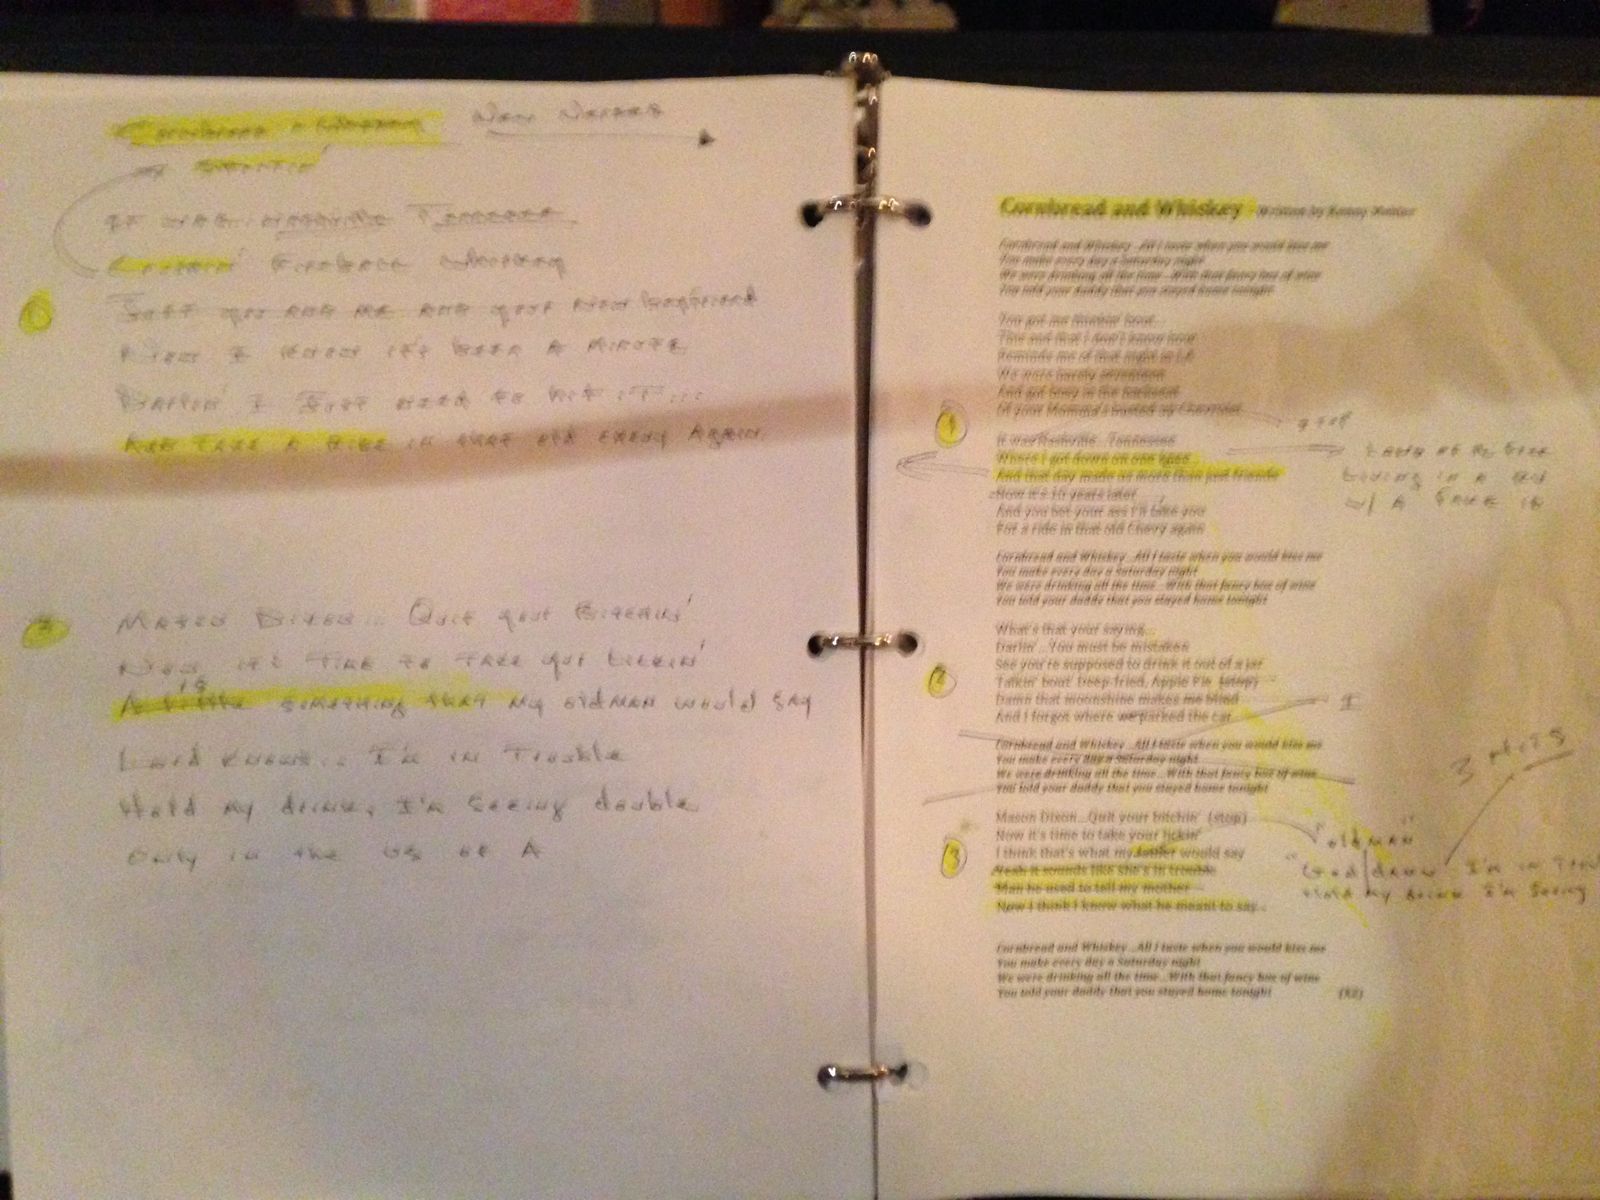 Cornbread n Whiskey New Verses
Startin'
It was Nashville Tennessee
Fireball Whiskey
①
Just you and me and your new boyfriend
Now I know it's been a minute
Darlin' I just need to hit it...
And take a ride in that old Chevy again
2
Mason Dixon... Quit your Bitchin'
Now it's time to take your lickin'
something that my old man would say
Lord knows.. I'm in Trouble
Hold my drink, I'm seeing double
Only in the US of A
Cornbread and Whiskey Written by Kenny
Cornbread and Whiskey...All I taste when you would kiss me
You make every day a Saturday night
We were drinking all the time...With that fancy box of wine
You told your daddy that you stayed home tonight
You got me thinkin' bout...
This and that I don't know how
Reminds me of that night in LA
We were barely seventeen
And got busy in the backseat
Of your Momma's busted up Chevrolet
1
It was Nashville...Tennessee
Where I got down on one knee
And that day made us more than just friends
Now it's 10 years later
And you bet your ass I'll take you
For a ride in that old Chevy again
w/ A
Cornbread and Whiskey...All I taste when you would kiss me
You make every day a Saturday night
We were drinking all the time...With that fancy box of wine
You told your daddy that you stayed home tonight
What's that your saying...
Darlin'...You must be mistaken
See you're supposed to drink it out of a jar
2
Talkin' bout Deep-fried, Apple Pie (stop)
Damn that moonshine makes me blind
I
And I forgot where we parked the car
Cornbread and Whiskey...All I taste when you would kiss me
You make every day a Saturday night
We were drinking all the time...With that fancy box of wine
You told your daddy that you stayed home tonight
3 Hits
Mason Dixon...Quit your bitchin' (stop)
Now it's time to take your lickin'
"old man"
3
I think that's what my father would say
Yeah it sounds like she's in trouble
"God damn I'm in
Man he used to tell my mother
Hold my drink I'm seeing
Now I think I know what he meant to say...
Cornbread and Whiskey...All I taste when you would kiss me
You make every day a Saturday night
We were drinking all the time...With that fancy box of wine
You told your daddy that you stayed home tonight (X2)